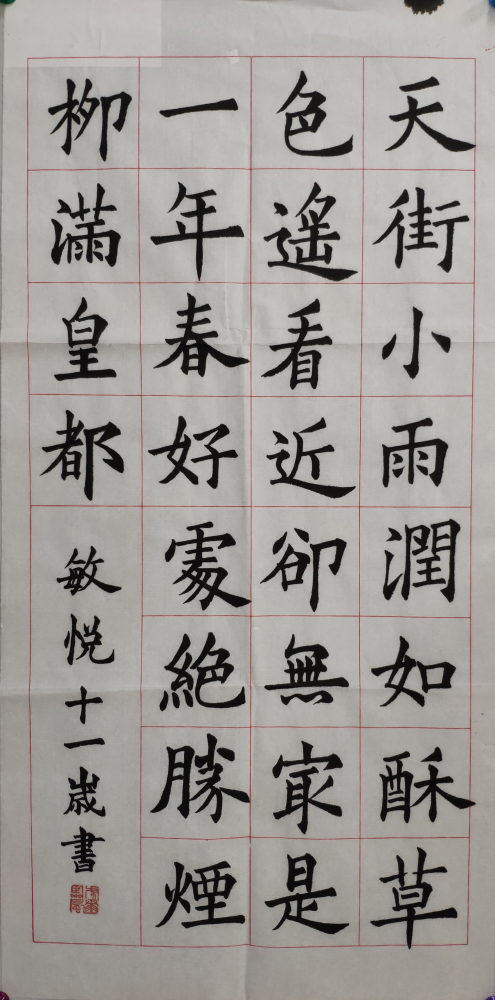 天街小雨潤如酥草
色遥看近卻無㝡是
一年春好處絶勝煙
柳滿皇都
敏悦十一歲書